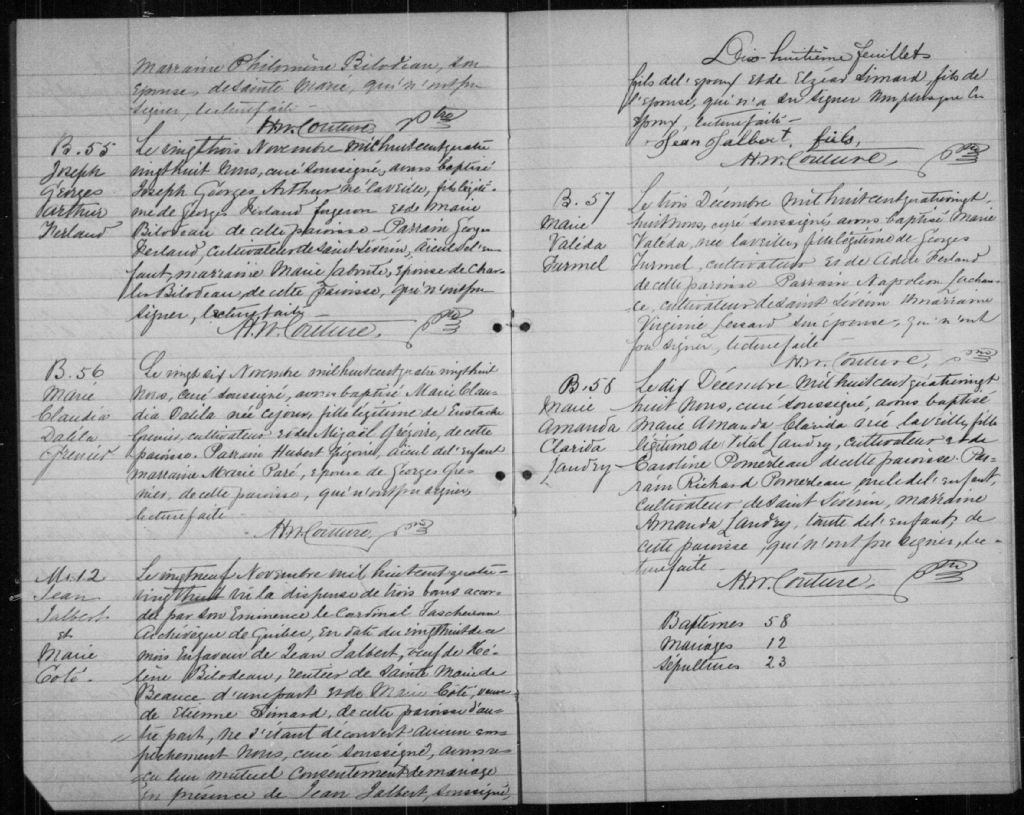 Marraine Philomène Bilodeau, son
épouse, de Sainte Marie, qui n'ont pu
signer, lecture faite -
H.W. Couture Ptre
B. 55
Joseph
Georges
Arthur
Ferland
Le vingt trois Novembre mil huit cent quatre
vingt huit Nous, curé soussigné, avons baptisé
Joseph Georges Arthur né la veille, fils légiti-
me de Georges Ferland forgeron et de Marie
Bilodeau de cette paroisse - Parrain Georges
Ferland, cultivateur de Saint Séverin, aieul de l'en-
fant, marraine Marie Labonté, épouse de Char-
les Bilodeau, de cette paroisse, qui n'ont pu
signer, lecture faite
H.W. Couture. Ptre
B. 56
Marie
Claudia
Dalila
Grenier
Le vingt six Novembre mil huit cent quatre vingt huit
Nous, curé soussigné, avons baptisé Marie Clau-
dia Dalila née ce jour, fille légitime de Eustache
Grenier, cultivateur et de Migaël Grégoire, de cette
paroisse. Parrain Hubert Grégoire, aieul de l'enfant
marraine Marie Paré, épouse de Georges Gre-
nier, de cette paroisse, qui n'ont pu signer,
lecture faite
H.W. Couture, Ptre
M. 12
Jean
Jalbert
et
Marie
Coté -
Le vingt neuf Novembre mil huit cent quatre-
vingt huit vu la dispense de trois bans accor-
dée par son Eminence le Cardinal Taschereau
Archévêque de Québec, en date du vingt huit de ce
mois en faveur de Jean Jalbert, veuf de Hé-
lène Bilodeau, rentier de Sainte Marie de
Beauce d'une part et de Marie Côté, veuve
de Etienne Simard, de cette paroisse d'au-
tre part, ne s'étant découvert aucun em-
pêchement Nous, curé soussigné, avons re-
çu leur mutuel consentement de mariage
en présence de Jean Jalbert, soussigné,
Dix-huitième feuillet
fils de l'époux et de Elzéar Simard fils de
l'épouse, qui n'a su signer non plus que les
époux, lecture faite -
Jean Jalbert, fils,
H.W. Couture, Ptre
B. 57
Marie
Valéda
Turmel
Le trois Décembre mil huit cent quatre vingt
huit Nous, curé soussigné, avons baptisé Marie
Valéda, née la veille, fille légitime de Georges
Turmel, cultivateur et de Adèle Ferland
de cette paroisse Parrain Napoléon Lachan-
ce, cultivateur de Saint Séverin marraine
Virginie Lessard son épouse, qui n'ont
pu signer, lecture faite -
H.W. Couture, Ptre
B. 58
Marie
Amanda
Clarida
Landry
Le dix Décembre mil huit cent quatre vingt
huit Nous, curé soussigné, avons baptisé
Marie Amanda Clarida née la veille, fille
légitime de Vital Landry, cultivateur et de
Caroline Pomerleau de cette paroisse. Par-
rain Richard Pomerleau oncle de l'enfant,
cultivateur de Saint Séverin, marraine
Amanda Landry, tante de l'enfant, de
cette paroisse, qui n'ont pu signer, lec-
ture faite -
H.W. Couture. Ptre
Baptêmes 58
Mariages 12
Sépultures 23